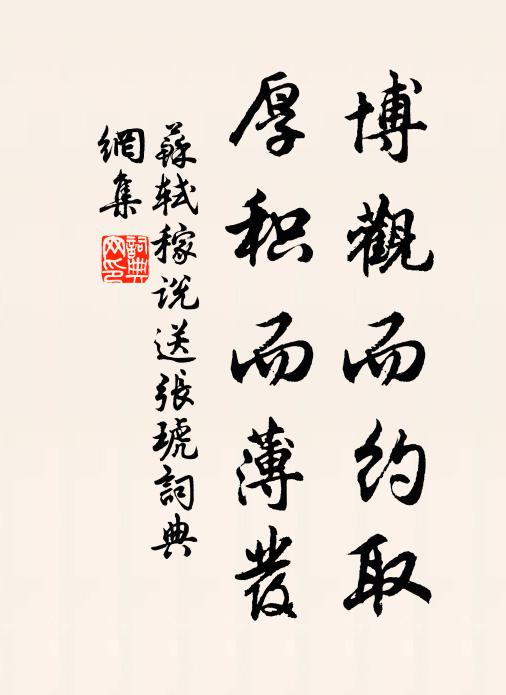 博觀而約取
厚积而薄發
蘇軾稼说送張琥詞典
網集
詞典网印